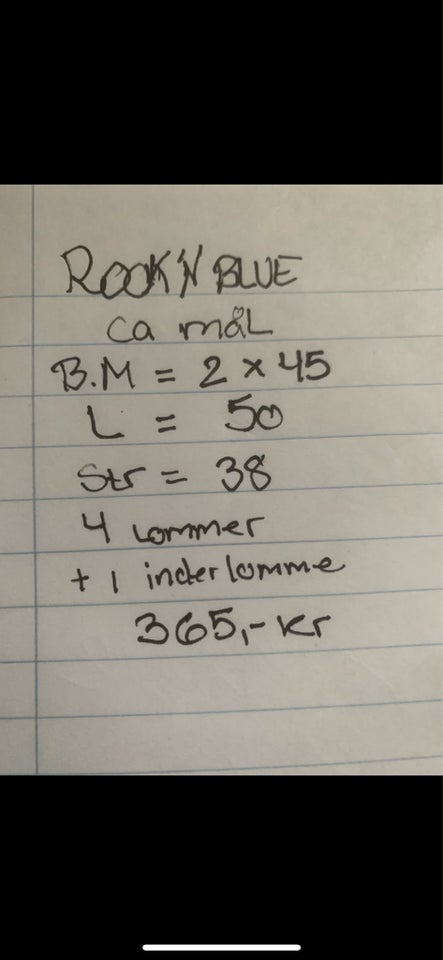 ROOK'N BLUE
ca mål
B.M = 2 x 45
L = 50
Str = 38
4 Lommer
+ 1 inderlomme
365,- kr